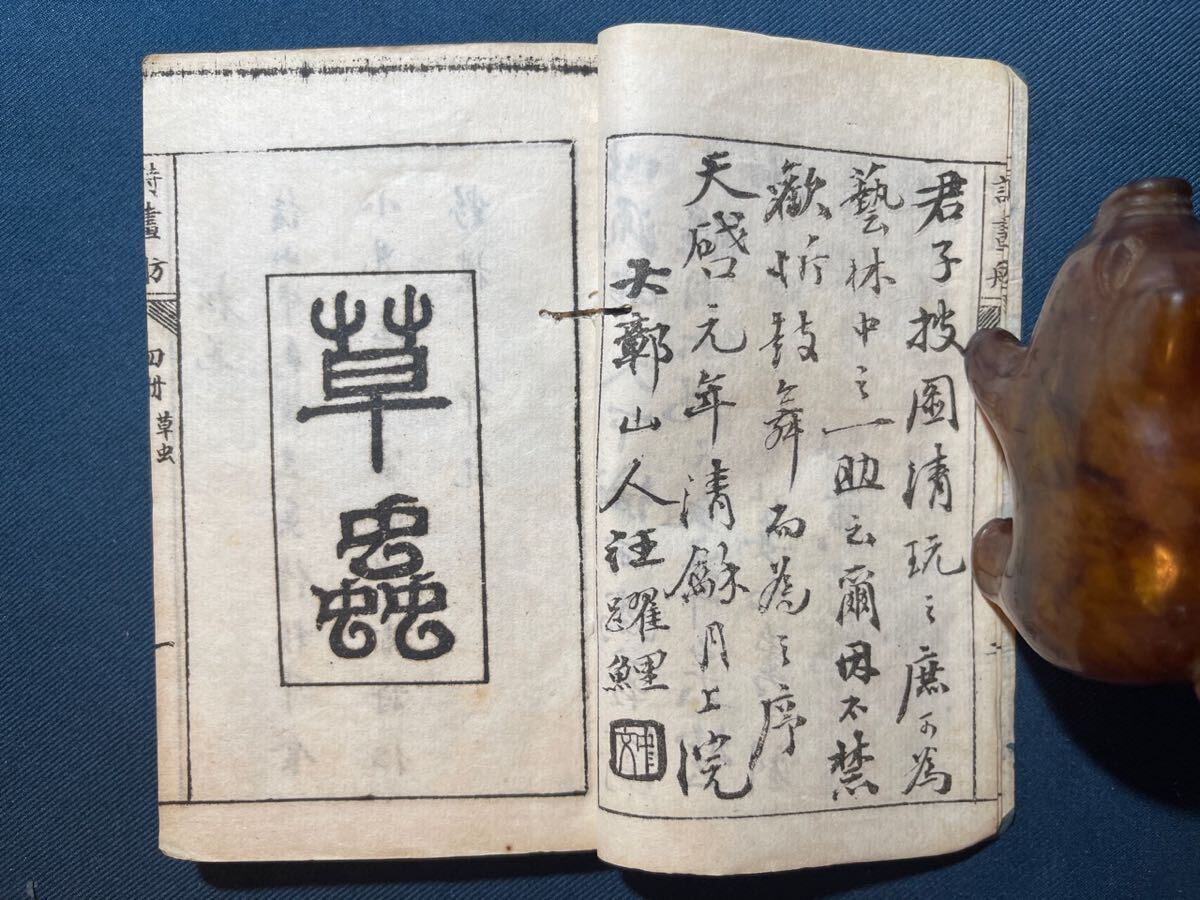 君子披圖清玩之庶可為
藝林中之一助云爾因不禁
歡忻鼓舞而為之序
天啓元年清龢月上浣
大鄣山人汪躍鯉
草蟲
詩畫舫
四册
草虫
一
詩畫舫
一